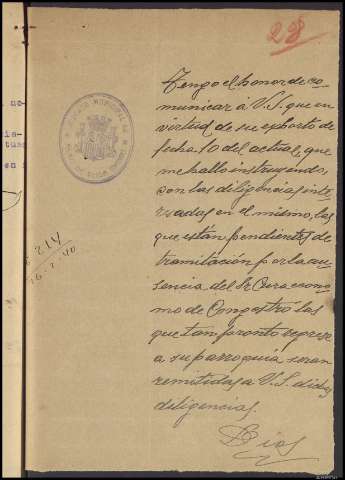 28
Tengo el honor de co-
municar á V.S. que en
virtud de su exhorto de
fecha 10 del actual, que
me hallo instruyendo,
con las diligencias inte-
resadas en el mismo, las
que estan pendientes de
tramitación por la au-
sencia del Sr Cura econo-
mo de Congostró las
que tan pronto regrese
a su parroquia seran
remitidas a V.S. dichas
diligencias.
Dios
214
16-2-40
en